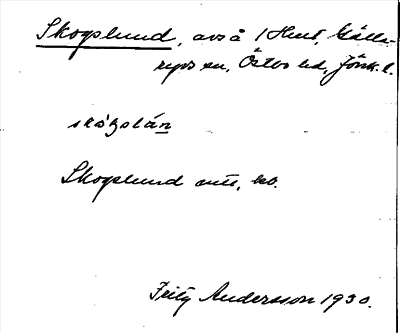 Skogslund, avs å 1 Hult, Gälla-
ryds sn, Östbo hd, Jönk. l.
skógslán
Skogslund
Fritz Andersson 1930.